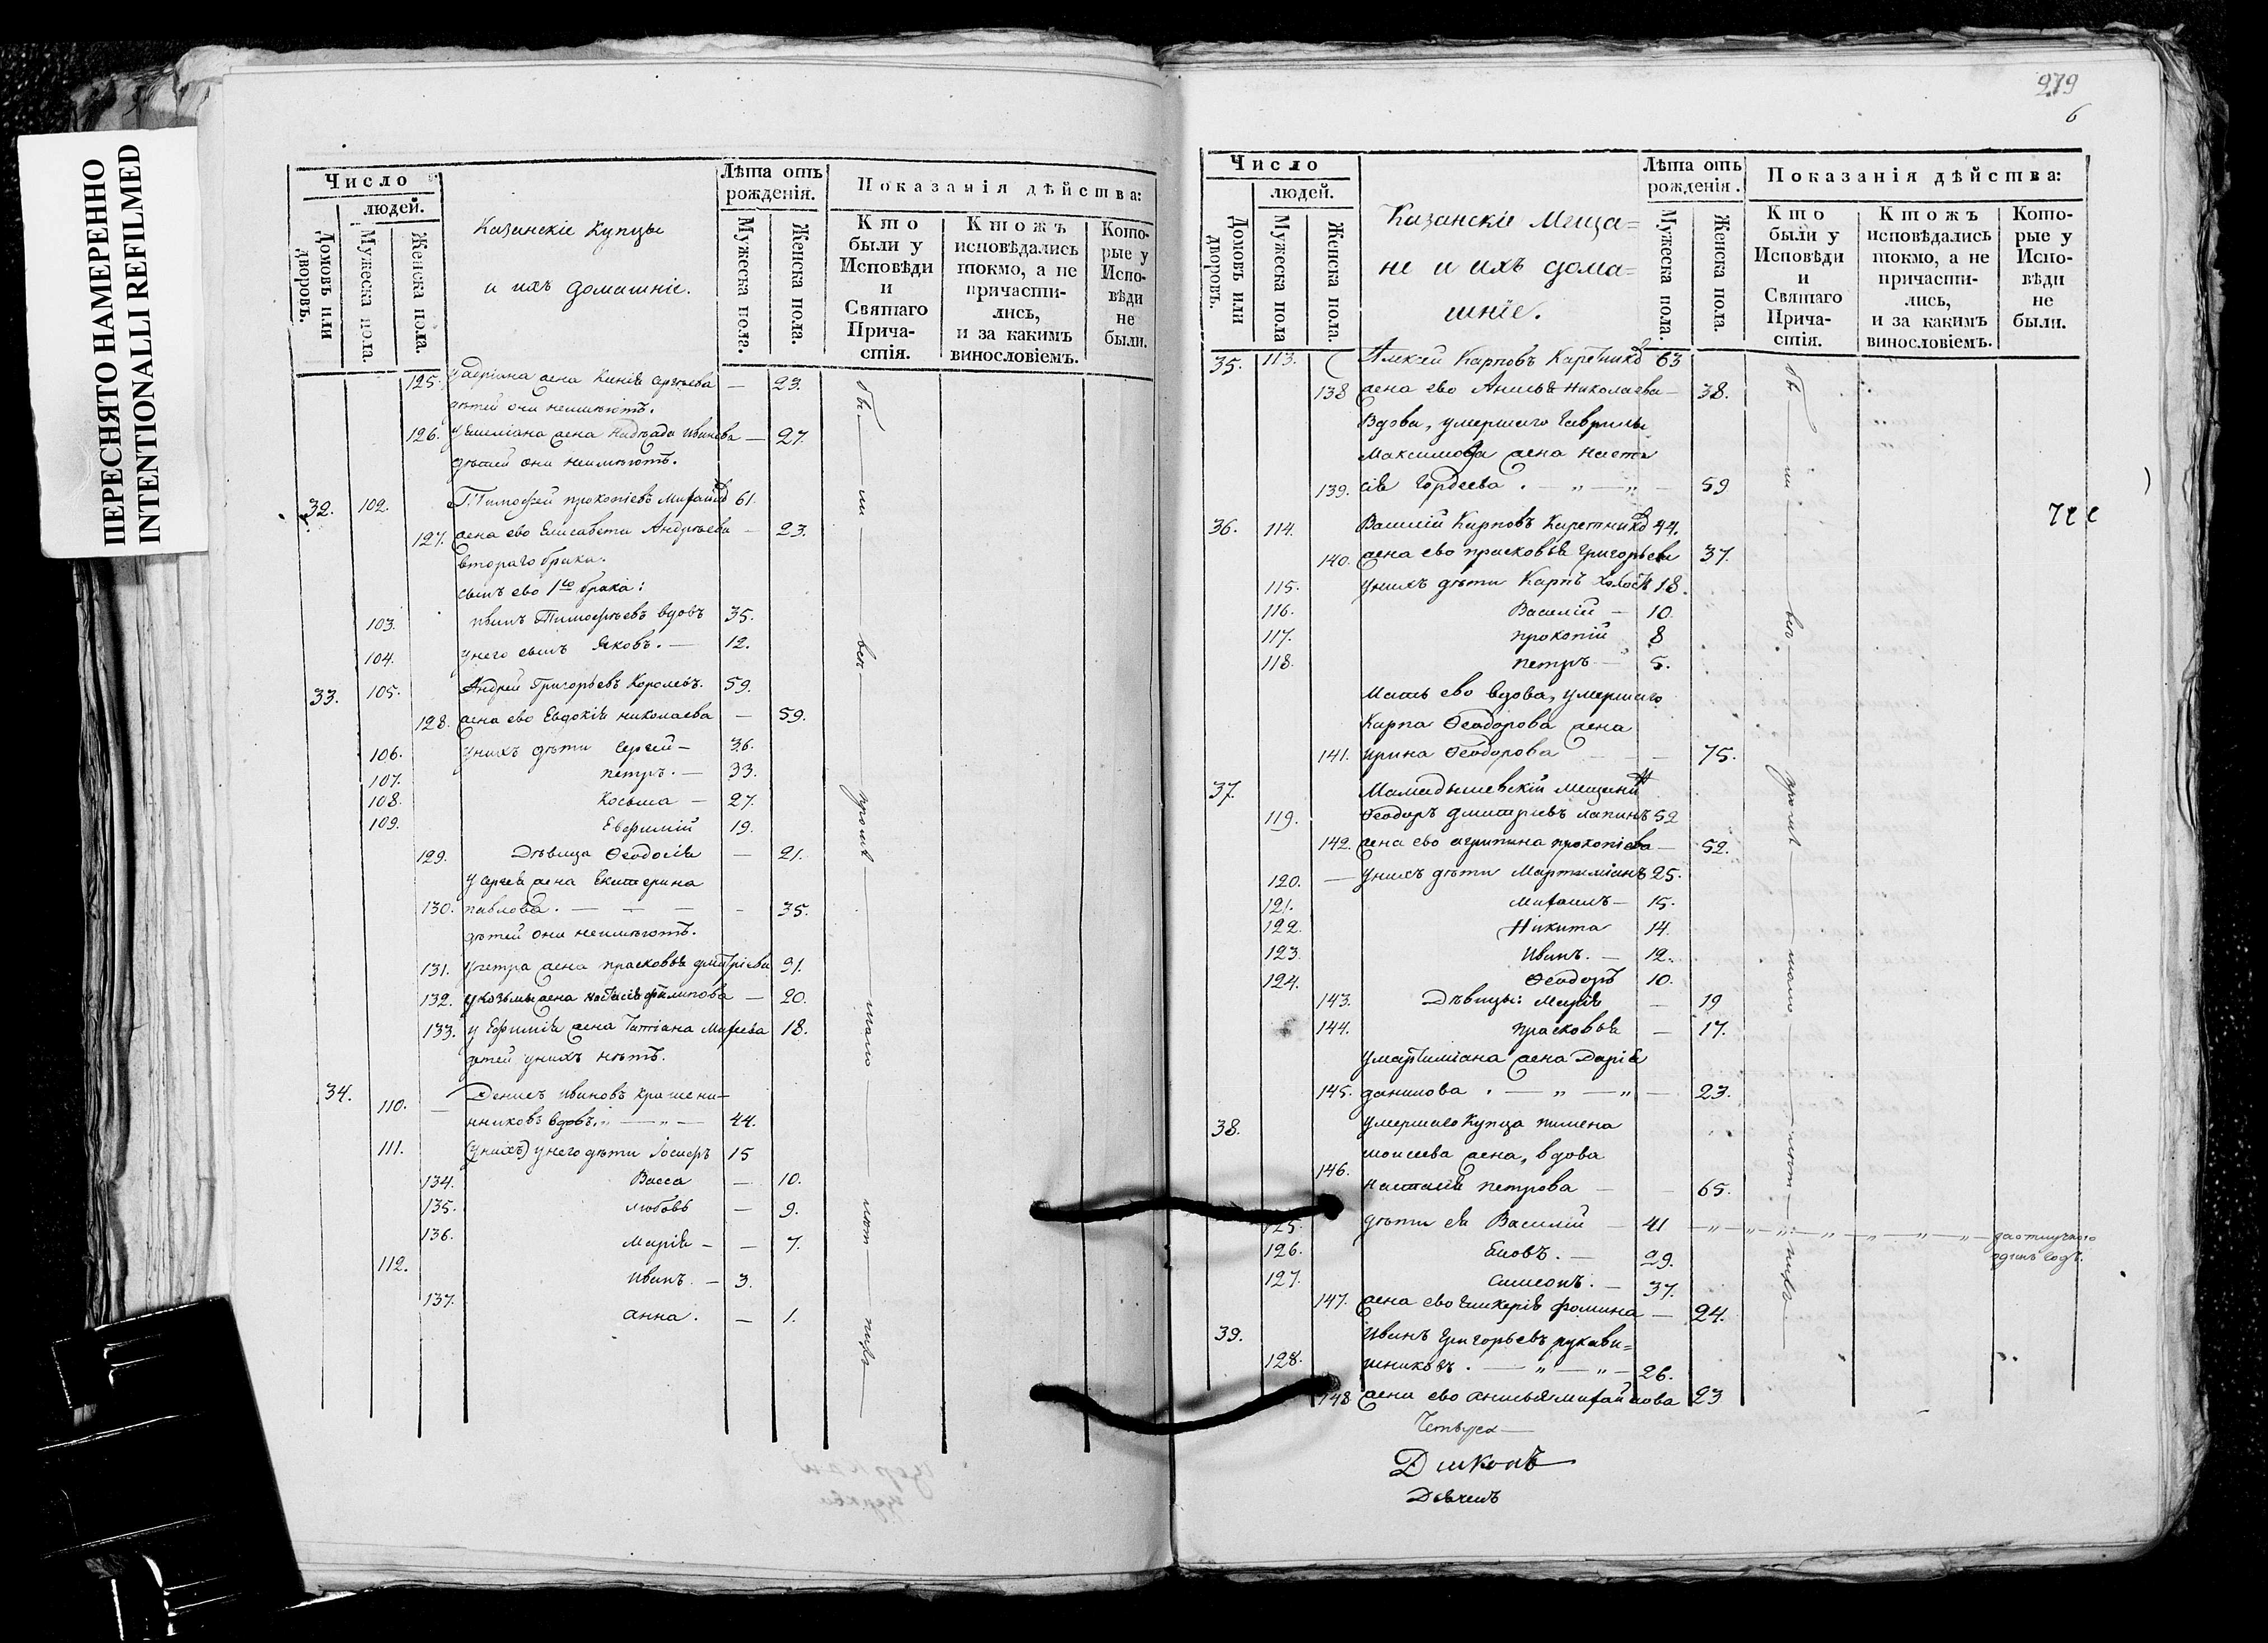 ПЕРЕСНЯТО НАМЕРЕННО
INTENTIONALLI REFILMED
Число
людей.
Домовъ или дворовъ.
Мужеска пола.
Женска пола.
Казанскіе Купцы
и ихъ домашніе.
Лѣта отъ рожденія.
Мужеска пола.
Женска пола.
Показанія дѣйства:
Кто были у Исповѣди и Святаго Причастія.
Ктожъ исповѣдались токмо, а не причастились, и за какимъ винословіемъ.
Которые у Исповѣди не были.
125. жена Сергѣева — 23.
дѣтей они неимѣютъ.
126. у Емеліана жена Надежда Иванова — 27.
дѣтей они неимѣютъ.
32. 102. Тимофей Прокопіевъ 61.
127. жена ево Елисавета Андрѣева — 23.
втораго брака.
сынъ ево 1го брака:
103. Иванъ Тимофѣевъ вдовъ 35.
104. унего сынъ Яковъ. — 12.
33. 105. Андрей Григорьевъ Королевъ. 59.
128. жена ево Евдокія Николаева — 59.
106. унихъ дѣти Сергей — 36.
107. Петръ. — 33.
108. Косьма — 27.
109. Евфимій 19.
129. Дѣвица Ѳеодосія — 21.
у Сергея жена Екатерина
130. Павлова. — — — - 35.
дѣтей они неимѣютъ.
131. упетра жена Прасковья Дмитріева 31.
132. укозьмы жена Настасія Филипова — 20.
133. у Ефимія жена Татіана Михеева 18.
детей унихъ нѣтъ.
34. 110. Денисъ Ивановъ Крашени-
нниковъ вдовъ. — „ — 44.
111. (унихъ) унего дѣти Іосифъ 15
134. Васса — 10.
135. Любовь — 9.
136. Марія - — 7.
112. Иванъ. — 3.
137. Анна. — 1.
279
6
Число
людей.
Домовъ или дворовъ.
Мужеска пола
Женска пола.
Казанскіе Меща=
не и ихъ дома=
шніе.
Лѣта отъ рожденія.
Мужеска пола.
Женска пола.
Показанія дѣйства:
Кто были у Исповѣди и Святаго Причастія.
Ктожъ исповѣдались токмо, а не причастились, и за какимъ винословіемъ.
Которые у Исповѣди не были.
35. 113. Алексей Карповъ Каретниковъ 63
138 жена ево Анисья Николаева — 38.
Вдова, умершаго Гаврилы
Максимова жена Наста
139. сія Гордеева. — „ — „ — 59
36. 114. Василій Карповъ Каретниковъ 44.
140. жена ево Прасковья Григорьева 37.
115. унихъ дѣти Карпъ холостъ 18.
116. Василій — 10.
117. Прокопій 8
118. Петръ — 5.
Мать ево вдова, умершаго
Карпа Ѳеодорова жена
141. Ирина Ѳеодорова — 75.
37. Мамадышевскій Мещанинъ
119. Ѳеодоръ Дмитріевъ Лапинъ 52
142. жена ево Агрипина Прокопіева — 52.
120. — унихъ дѣти Мартиміанъ 25.
121. Михаилъ — 15.
122. Никита 14.
123. Иванъ. — 12.
124. Ѳеодоръ 10.
143. Дѣвицы: Марія — 19
144. Прасковья — 17.
умартиміана жена Дарія
145. Данилова. — „ — „ — 23.
38. умершаго Купца Пимена
Моисеева жена, вдова
146. Настасія Петрова — — 65.
125. дѣти ея Василій — 41 — „ — „ — „ — „ — „ — „ —
одинъ годъ.
126. — 29.
127. Симеонъ. — 37.
147. жена ево Гликерія Фомина — 24.
39. Иванъ Григорьевъ Рукави=
128. шниковъ. — „ — „ — 26.
148 жена ево Анисья Михайлова 23
Діаконъ